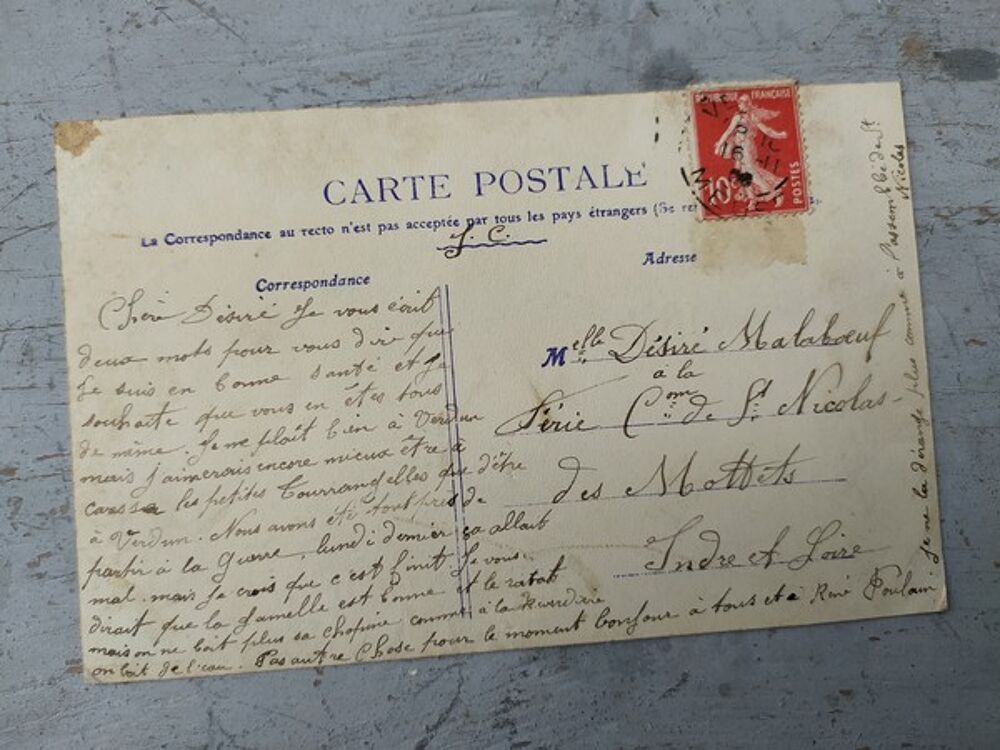 CARTE POSTALE
La Correspondance au recto n'est pas acceptée par tous les pays étrangers (Se
J. C.
Correspondance
Adresse
Chère Désiré Je vous écrit
deux mots pour vous dire que
Je suis en bonne santé et Je
souhaite que vous en êtes tous
de même. Je me plaît bien à Verdun
mais J'aimerais encore mieux être à
les petites Tourrangelles que d'être
à Verdun. Nous avons été tout près de
partir à la Guerre, lundi dernier ça allait
mal. mais Je crois que c'est finit. Je vous
dirait que la Gamelle est bonne et le ratat
mais on ne boit plus sa chopine comme à la
on boit de l'eau. Pas autre Chose pour le moment bonjour à tous et à René Poulain
Je ne la dérange plus comme à St
Nicolas
Melle Désiré Malabœuf
à la
Com de St Nicolas-
des Mottets
Indre et Loire
RÉPUBLIQUE FRANÇAISE
10
POSTES